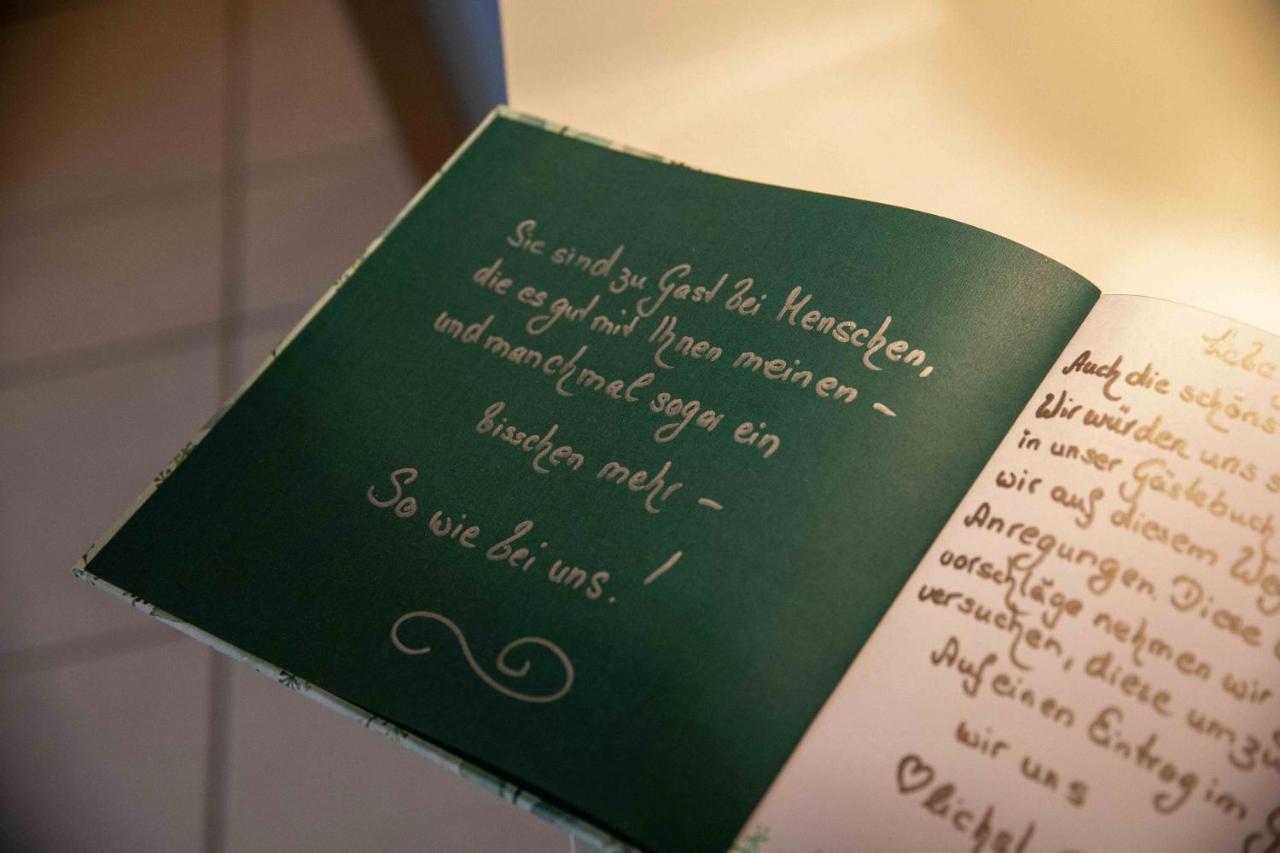 Sie sind zu Gast bei Menschen,
die es gut mit Ihnen meinen –
und manchmal sogar ein
bisschen mehr –
So wie bei uns. !
Liebe
Auch die schöns
Wir würden uns s
in unser Gästebuch
wir auf diesem Weg
Anregungen. Diese
vorschläge nehmen wir
versuchen, diese umzu
Auf einen Eintrag im
wir uns
♡lichst